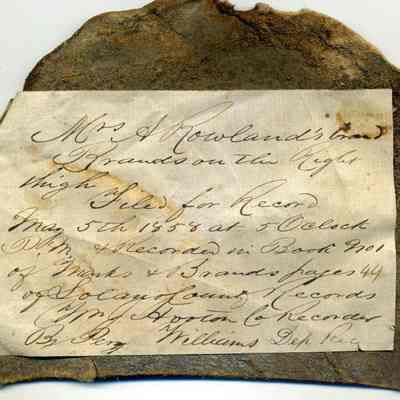 Mrs A Rowland's brand
Brands on the Right
thigh
Filed for Record
May 5th 1858 at 5 Oclock
P.M. & Recorded in Book No 1
of Marks & Brands pages 44
of Solano County Records
Wm J Hooton Co Recorder
By Perry Williams Dep Rec